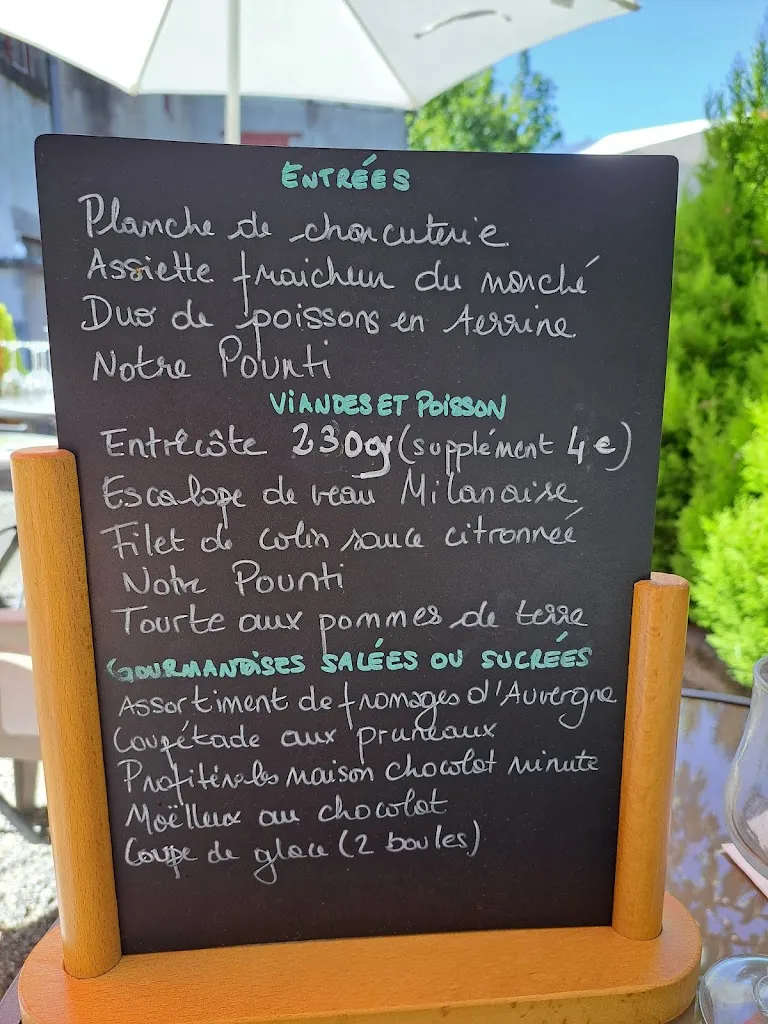 ENTRÉES
Planche de charcuterie
Assiette fraicheur du marché
Duo de poissons en terrine
Notre Pounti
VIANDES ET POISSON
Entrêcôte 230gr (supplément 4€)
Escalope de veau Milanaise
Filet de colin sauce citronneé
Notre Pounti
Tourte aux pommes de terre
GOURMANDISES SALÉES OU SUCRÉES
Assortiment de fromages d'Auvergne
aux pruneaux
Profiteroles maison chocolat minute
Moëlleux au chocolat
Coupe de glace (2 boules)